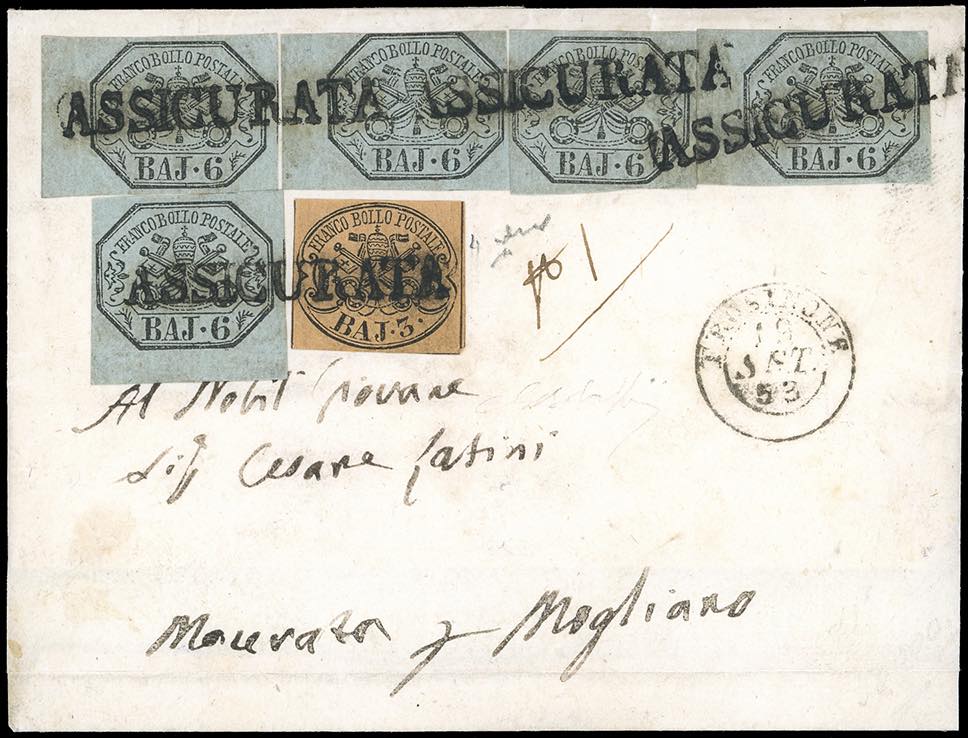 FRANCO BOLLO POSTALE FRANCO BOLLO POSTALE FRANCO BOLLO POSTALE FRANCO BOLLO POSTALE
ASSICURATA ASSICURATA ASSICURATA
BAJ·6 BAJ·6 BAJ·6 BAJ·6
FRANCO BOLLO POSTALE FRANCO BOLLO POSTALE
ASSICURATA
BAJ·6 BAJ·3·
1
FROSINONE
SET.
Al Nobil Giovane
Sig Cesare Latini
Macerata p Mogliano